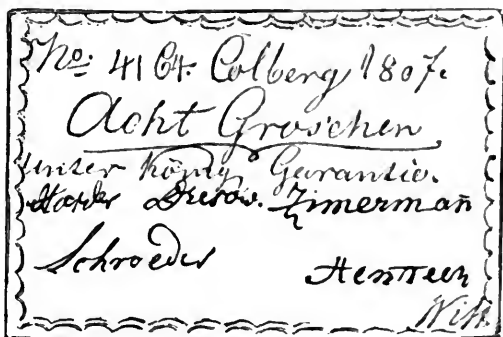 No. 4164. Colberg 1807.
Acht Groschen
unter König. Garantie.
Dresow. Zimermañ
Schroeder